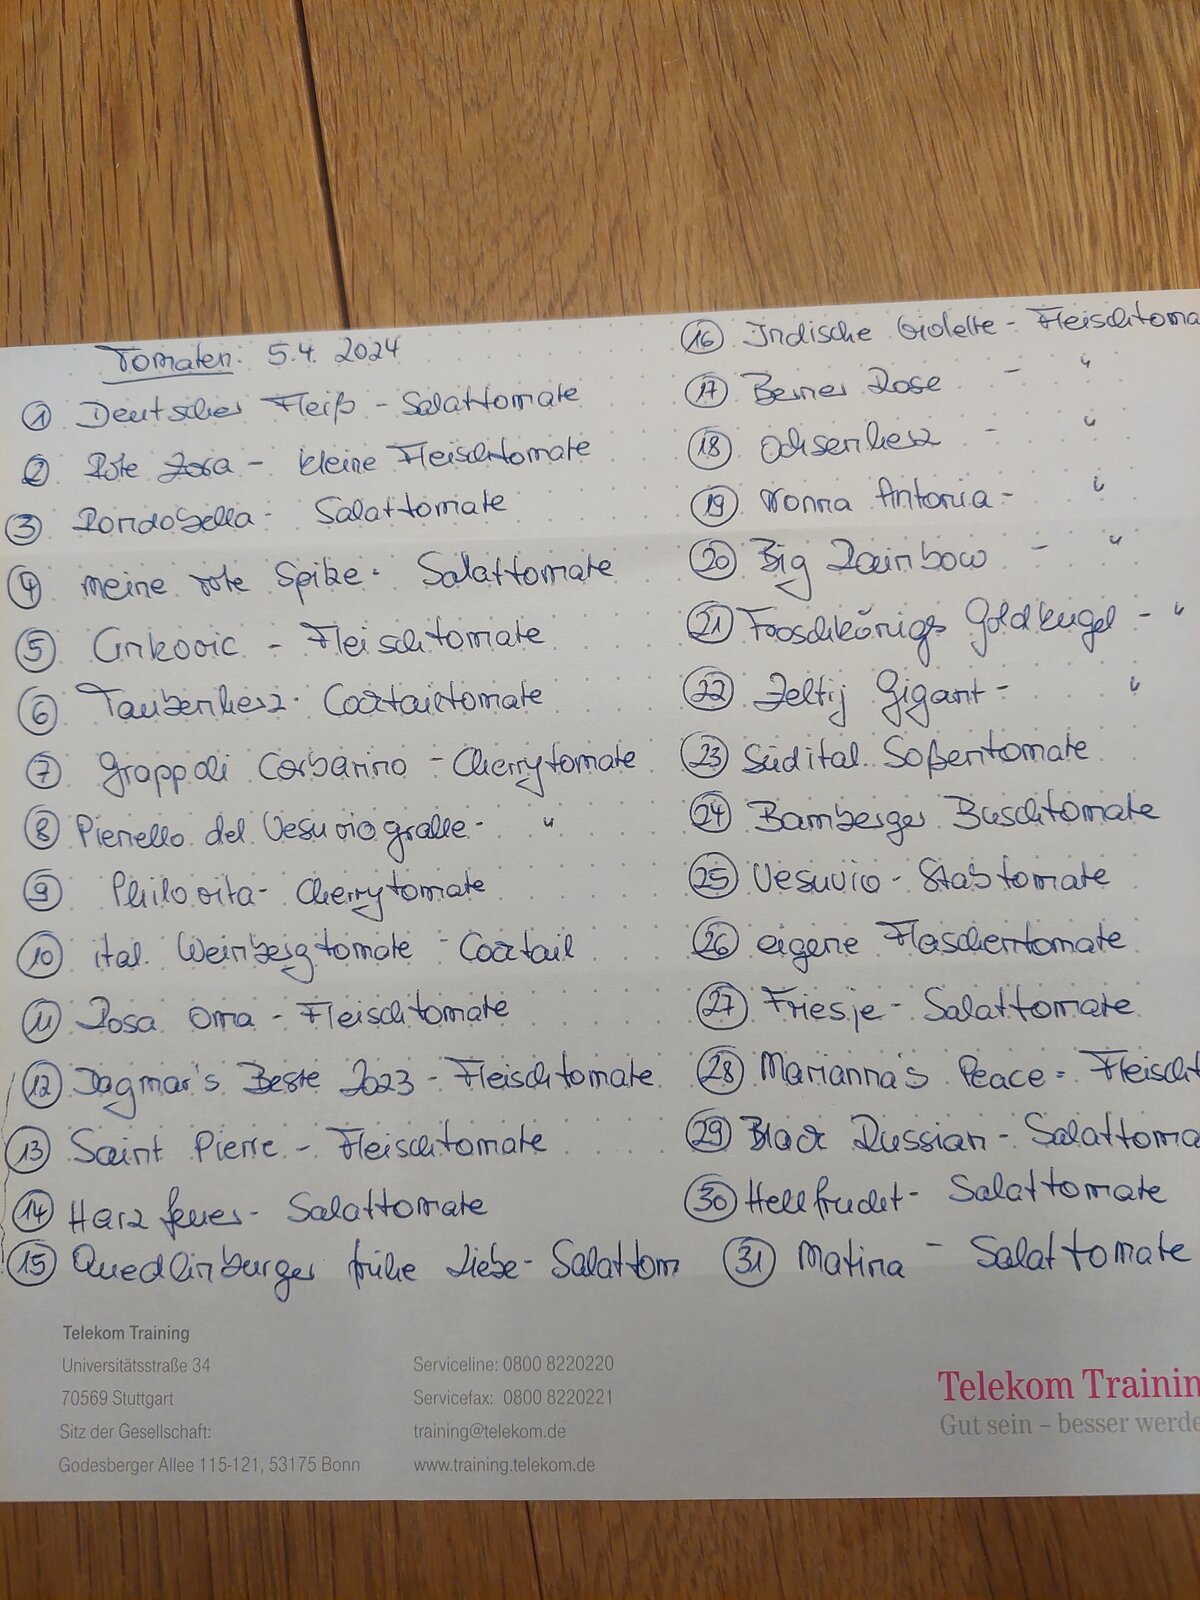 Tomaten: 5.4. 2024
1 Deutscher Fleiß - Salattomate
2 Rote Zora - kleine Fleischtomate
3 Rondobella - Salattomate
4 meine rote Spitze - Salattomate
5 Crnkovic - Fleischtomate
6 Taubenherz - Cocktailtomate
7 Grappoli Corbarino - Cherrytomate
8 Pienello del Vesuvio gralle - "
9 Philovita - Cherrytomate
10 ital. Weinbergtomate - Cocktail
11 Rosa Oma - Fleischtomate
12 Dagmar's Beste 2023 - Fleischtomate
13 Saint Pierre - Fleischtomate
14 Harzfeuer - Salattomate
15 Quedlinburger frühe Liebe - Salattom
16 Indische Violette - Fleischtoma
17 Berner Rose - "
18 Ochsenherz - "
19 Nonna Antonia - "
20 Big Rainbow - "
21 Froschkönigs Goldkugel - "
22 Zeltij Gigant - "
23 Südital. Soßentomate
24 Bamberger Buschtomate
25 Vesuvio - Stabtomate
26 eigene Flaschentomate
27 Friesje - Salattomate
28 Marianna's Peace - Fleischt
29 Black Russian - Salattoma
30 Hellfrucht - Salattomate
31 Matina - Salattomate
Telekom Training
Universitätsstraße 34
70569 Stuttgart
Sitz der Gesellschaft:
Godesberger Allee 115-121, 53175 Bonn
Serviceline: 0800 8220220
Servicefax: 0800 8220221
training@telekom.de
www.training.telekom.de
Telekom Trainin
Gut sein – besser werde